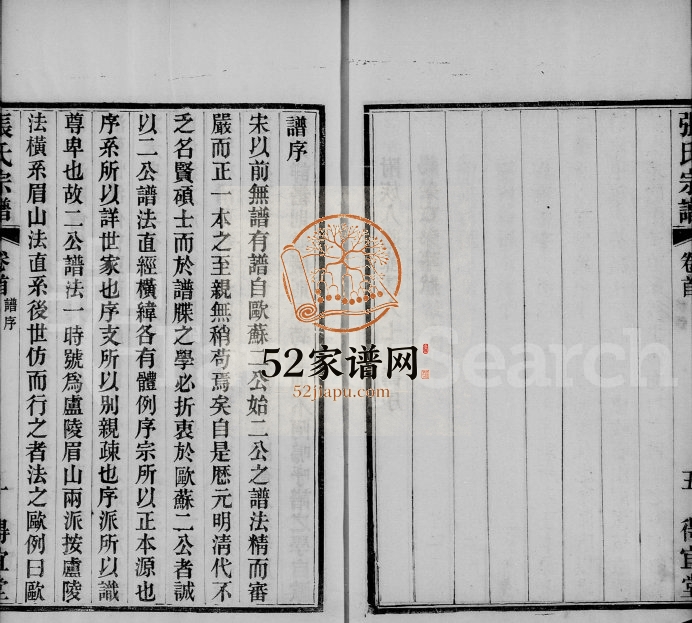 張氏宗譜
卷首
五
得宜堂
譜序
宋以前無譜有譜自歐蘇二公始二公之譜法精而審
嚴而正一本之至親無稍苟焉矣自是歷元明清代不
乏名賢碩士而於譜牒之學必折衷於歐蘇二公者誠
以二公譜法直經橫緯各有體例序宗所以正本源也
序系所以詳世家也序支所以別親疎也序派所以識
尊卑也故二公譜法一時號為盧陵眉山兩派按盧陵
法橫系眉山法直系後世仿而行之者法之歐例曰歐
張氏宗譜
卷首
譜序
一
得宜堂
52家谱网
52jiapu.com
Search